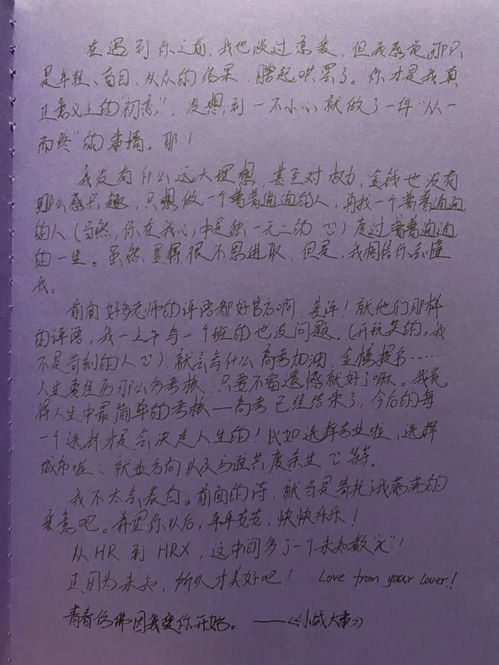 在遇到你之前,我也谈过恋爱,但我感觉那只
是年轻、盲目、从众的结果,瞎起哄罢了。你才是我真
正意义上的"初恋",没想到一不小心就做了一件"从一
而终"的事情。耶!
我没有什么远大理想,甚至对权力、金钱也没有
那么感兴趣,只想做一个普普通通的人,再找一个普普通通
的人(当然,你在我心中是独一无二的)度过普普通通
的一生。虽然显得很不思进取,但是,我相信你会懂
我。
前面好多老师的评语都好官方啊,姜连!就他们那样
的评语,我一上午写一个班的也没问题。(开玩笑的,我
不是苛刻的人)就会写什么高考加油,金榜提名……
人生要经历那么多考核,只要不留遗憾就好了嘛。我觉
得人生中最简单的考核——高考已经结束了,今后的每
一个选择才是会决定人生的!比如选择专业啦,选择
城市啦、就业方向以及与谁共度余生等等。
我不太会表白。前面的诗,就当是寄托了我满满的
爱意吧。希望你以后,平平安安,快快乐乐!
从HR到HRX,这中间多了一个未知数"x"!
正因为未知,所以才美好吧! Love from your lover!
青春仿佛因我爱你开始。——《小城大事》